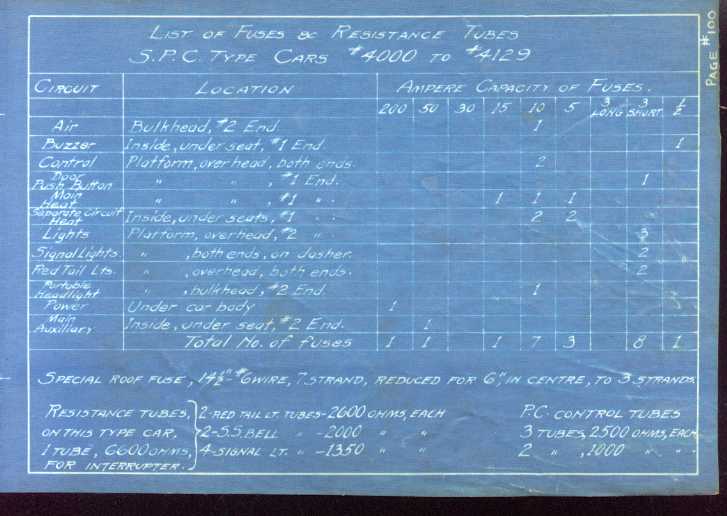 PAGE #100
LIST OF FUSES & RESISTANCE TUBES
S.P.C. TYPE CARS #4000 TO #4129
CIRCUIT LOCATION AMPERE CAPACITY OF FUSES.
200 50 30 15 10 5 3 LONG 3 SHORT 1/2
Air Bulkhead, #2 End. 1
Buzzer Inside, under seat, #1 End. 1
Control Platform, overhead, both ends. 2
Door Push Button " " , #1 End. 1
Main Heat " " , #1 " . 1 1 1
Separate Circuit Heat Inside, under seats, #1 " . 2 2
Lights Platform, overhead, #2 " . 3
Signal Lights " , both ends, on dasher. 2
Red Tail Lts. " , overhead, both ends. 2
Portable Headlight " , bulkhead, #2 End. 1
Power Under car body 1
Main Auxiliary Inside, under seat, #2 End. 1
Total No. of fuses 1 1 1 7 3 8 1
SPECIAL ROOF FUSE, 14 1/2"-#6 WIRE, 7 STRAND, REDUCED FOR 6", IN CENTRE, TO 3 STRANDS.
RESISTANCE TUBES, 2-RED TAIL LT. TUBES-2600 OHMS, EACH P.C. CONTROL TUBES
ON THIS TYPE CAR, 2-S.S. BELL " -2000 " " 3 TUBES, 2500 OHMS, EACH
1 TUBE, 6600 OHMS, 4-SIGNAL LT. " -1350 " " 2 " , 1000 " " .
FOR INTERRUPTER.